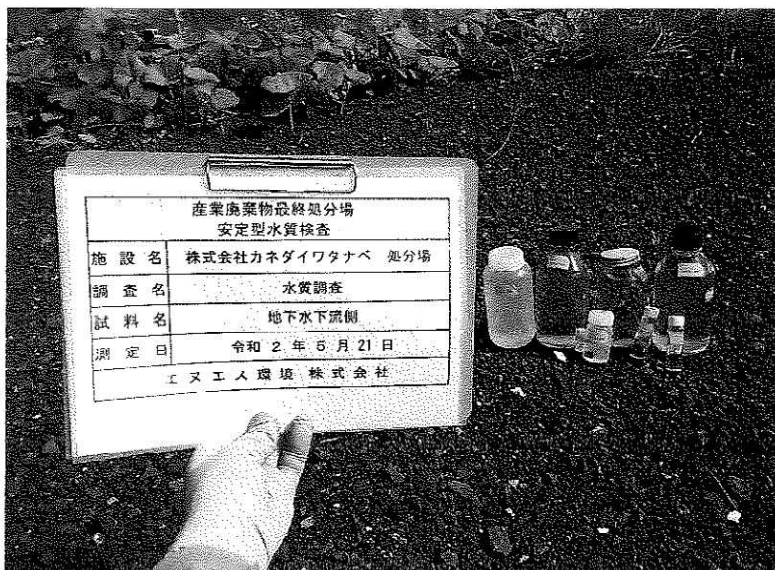 産業廃棄物最終処分場
安定型水質検査
施設名 株式会社カネダイワタナベ 処分場
調査名 水質調査
試料名 地下水下流側
測定日 令和 2 年 5 月 21 日
エヌエス環境 株式会社